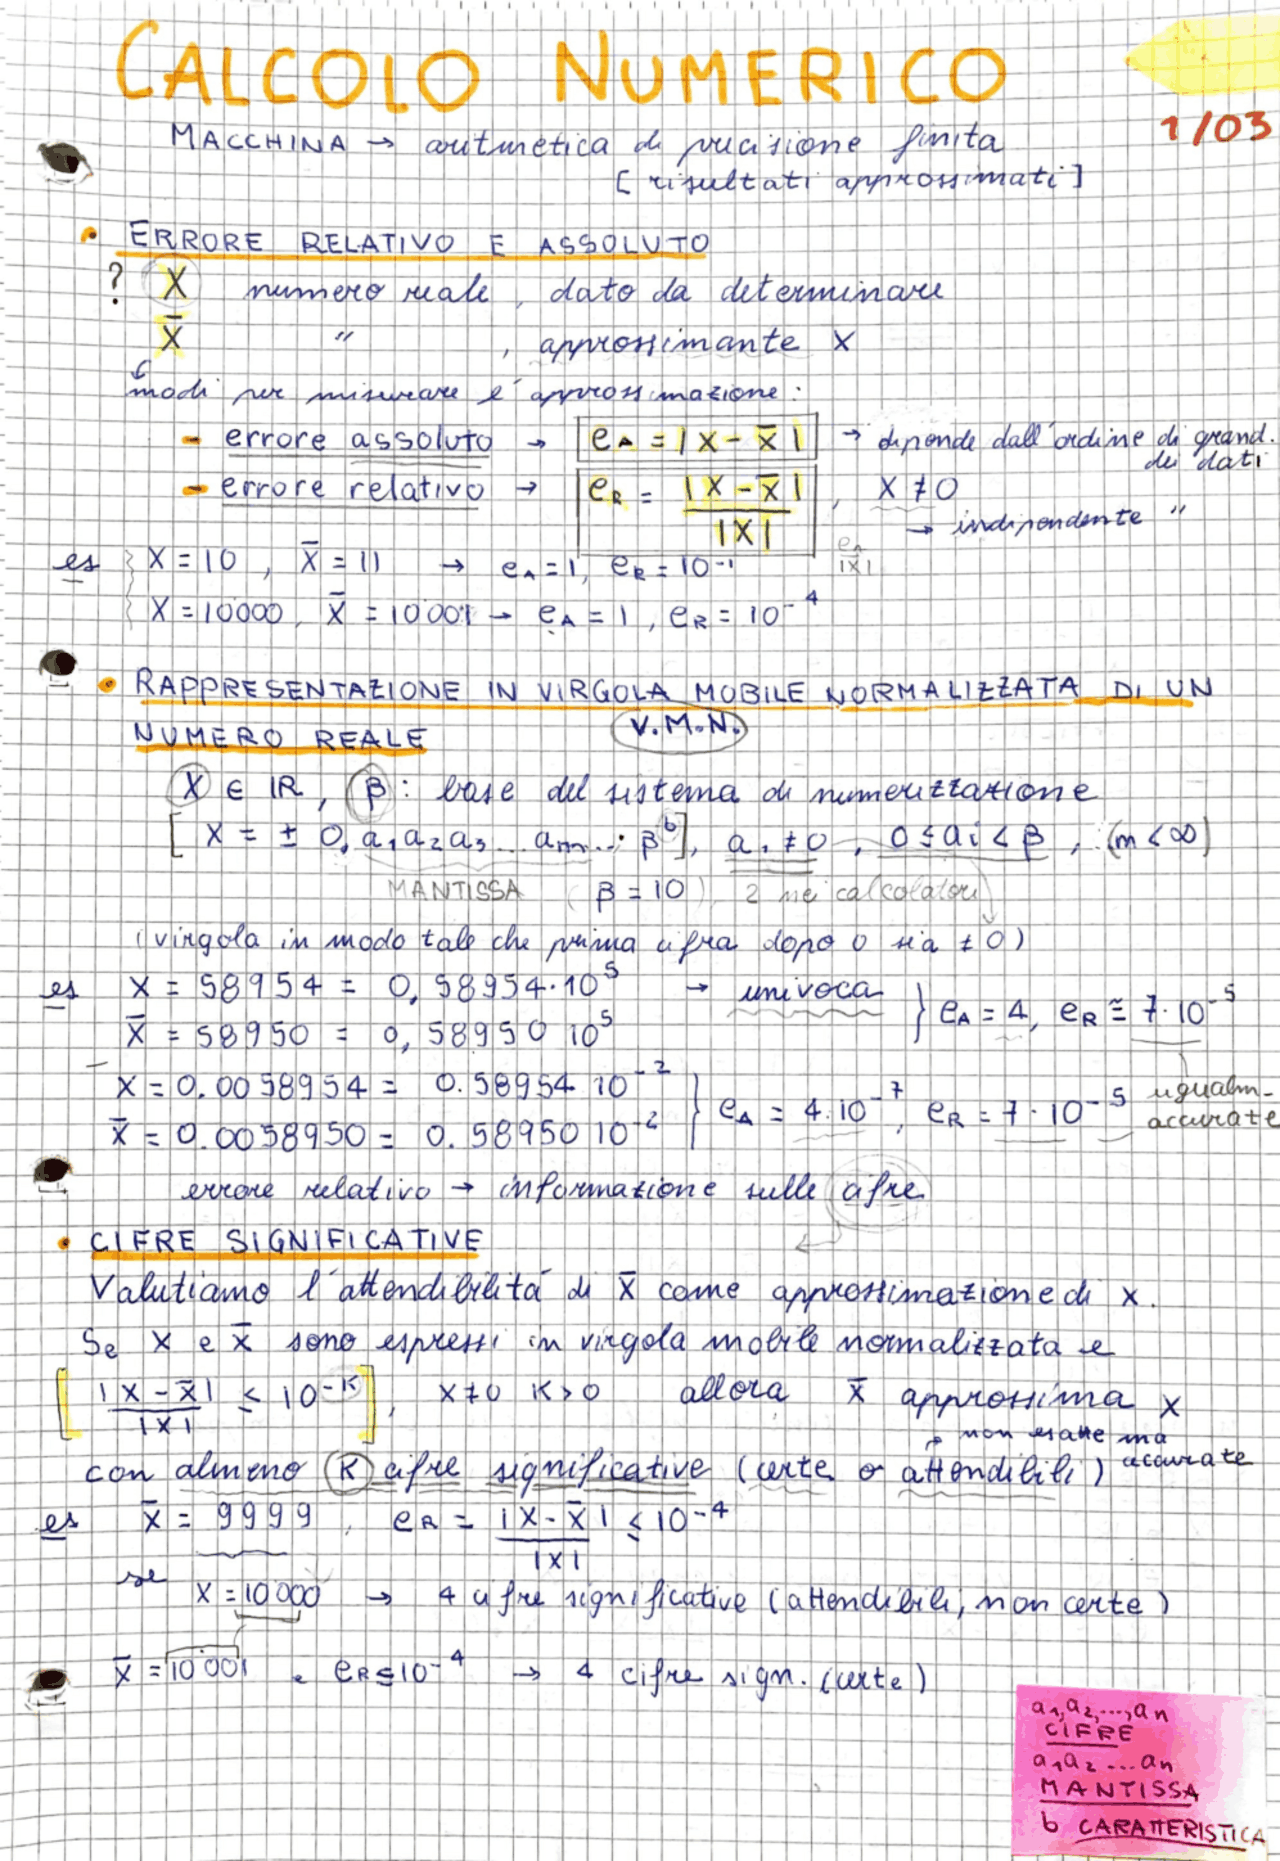 CALCOLO NUMERICO
1/03
MACCHINA → aritmetica di precisione finita
[risultati approssimati]
• ERRORE RELATIVO E ASSOLUTO
? X numero reale, dato da determinare
X̄ " , approssimante X
modi per misurare l'approssimazione:
- errore assoluto → e_A = |X - X̄| → dipende dall'ordine di grand. dei dati
- errore relativo → e_R = |X - X̄| / |X| , X ≠ 0
→ indipendente "
e_A / |X|
es { X = 10 , X̄ = 11 → e_A = 1, e_R = 10^-1
X = 10000, X̄ = 10001 → e_A = 1, e_R = 10^-4
• RAPPRESENTAZIONE IN VIRGOLA MOBILE NORMALIZZATA DI UN
NUMERO REALE V.M.N.
X ∈ IR, β: base del sistema di numerizzazione
[X = ± 0, a₁a₂a₃...a_m...· β^b], a₁ ≠ 0, 0 ≤ ai < β, (m < ∞)
MANTISSA (β = 10), 2 nei calcolatori
(virgola in modo tale che prima cifra dopo 0 sia ≠ 0)
es X = 58954 = 0,58954·10^5 → univoca } e_A = 4, e_R ≅ 7·10^-5
X̄ = 58950 = 0,58950 10^5
- X = 0.0058954 = 0.58954 10^-2 } e_A = 4·10^-7, e_R = 7·10^-5 ugualm-
X̄ = 0.0058950 = 0.58950 10^-2 accurate
errore relativo → informazione sulle cifre
• CIFRE SIGNIFICATIVE
Valutiamo l'attendibilità di X̄ come approssimazione di X.
Se X e X̄ sono espressi in virgola mobile normalizzata e
[|X - X̄| / |X| ≤ 10^-K], X ≠ 0 K > 0 allora X̄ approssima X
→ non esatte ma accurate
con almeno K cifre significative (certe o attendibili)
es X̄ = 9999, e_R = |X - X̄| / |X| ≤ 10^-4
se X = 10000 → 4 cifre significative (attendibili, non certe)
X̄ = 10001 . e_R ≤ 10^-4 → 4 cifre sign. (certe)
a₁,a₂,...,an
CIFRE
a₁a₂...an
MANTISSA
b CARATTERISTICA